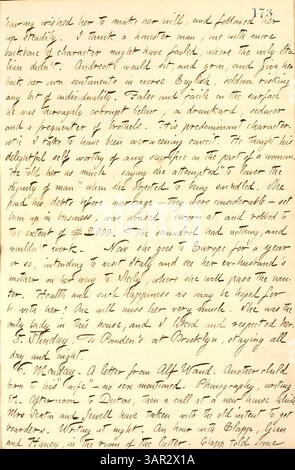 173
having wished her to make her will, and followed her
up steadily. I think a honester man, one with more
backbone of character might have failed, where the only
didn't. Andreotti would sit and grin, and give her
back her own sentiments in worse English, seldom risking
any bit of individuality. False and facile on the surface
he was thoroughly corrupt below, a drunkard, seducer
and a frequenter of brothels. His predominant character-
istic I take to have been overweening conceit. He thought his
delightful self worthy of any sacrifice on the part of a woman.
He told her as much, saying she attempted to "lower the
dignity of man" when she objected to being swindled. She
paid his debts before marriage — they were considerable — set
him up in business, was abused, sworn at and robbed to
the extent of $2000. The scoundrel had nothing, and
wouldn't work. Now she goes to Europe for a year
or so, intending to visit Italy and see her ex-husband's
mother on her way to Sicily, where she will pass the win-
ter. Health and such happiness as may be hoped for
be with her! One will miss her very much. She was the
only lady in this house, and I liked and respected her.
5. Sunday. To Ponden's at Brooklyn, staying all
day and night.
6. Monday. A letter from Alf Waud. Another child
born to his "wife" — no sex mentioned. Phonography, writing
&c. Afternoon to Doctors, then a call at a new house which
Mrs Sexton and Jewell have taken with the old intent to get
boarders. Writing at night. An hour with Clapp, Gun
and Haney, in the room of the latter. Clapp told some
alamy
Image ID: 3AR2X1A
www.alamy.com